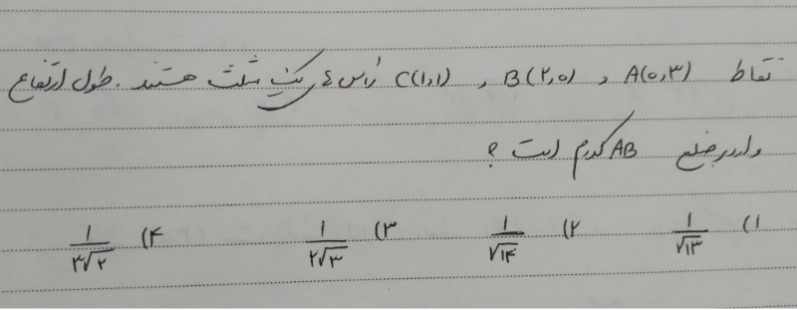 نقاط A(۰,۳) , B(۲,۰) , C(۱,۱) رأس‌های یک مثلث هستند . طول ارتفاع
وارد بر ضلع AB کدام است ؟
۱) \frac{۱}{\sqrt{۱۳}} ۲) \frac{۱}{\sqrt{۱۴}} ۳) \frac{۱}{۲\sqrt{۳}} ۴) \frac{۱}{۳\sqrt{۲}}